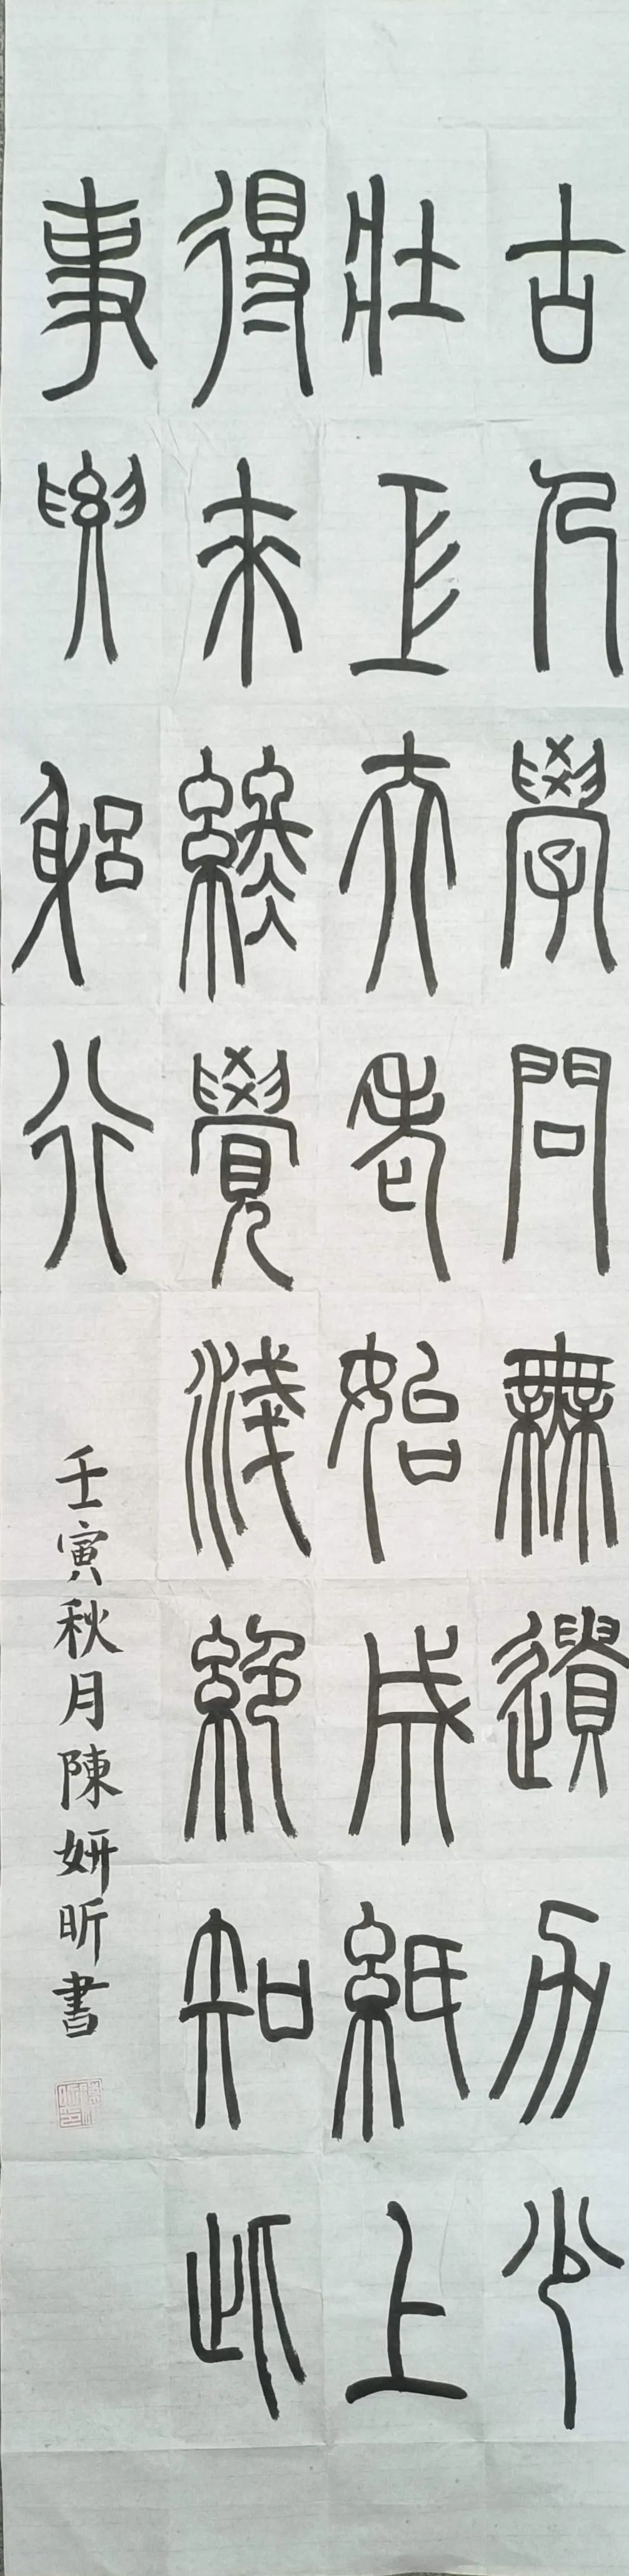 古人學問無遺力少
壯工夫老始成紙上
得來終覺淺絕知此
事要躳行
壬寅秋月陳妍昕書